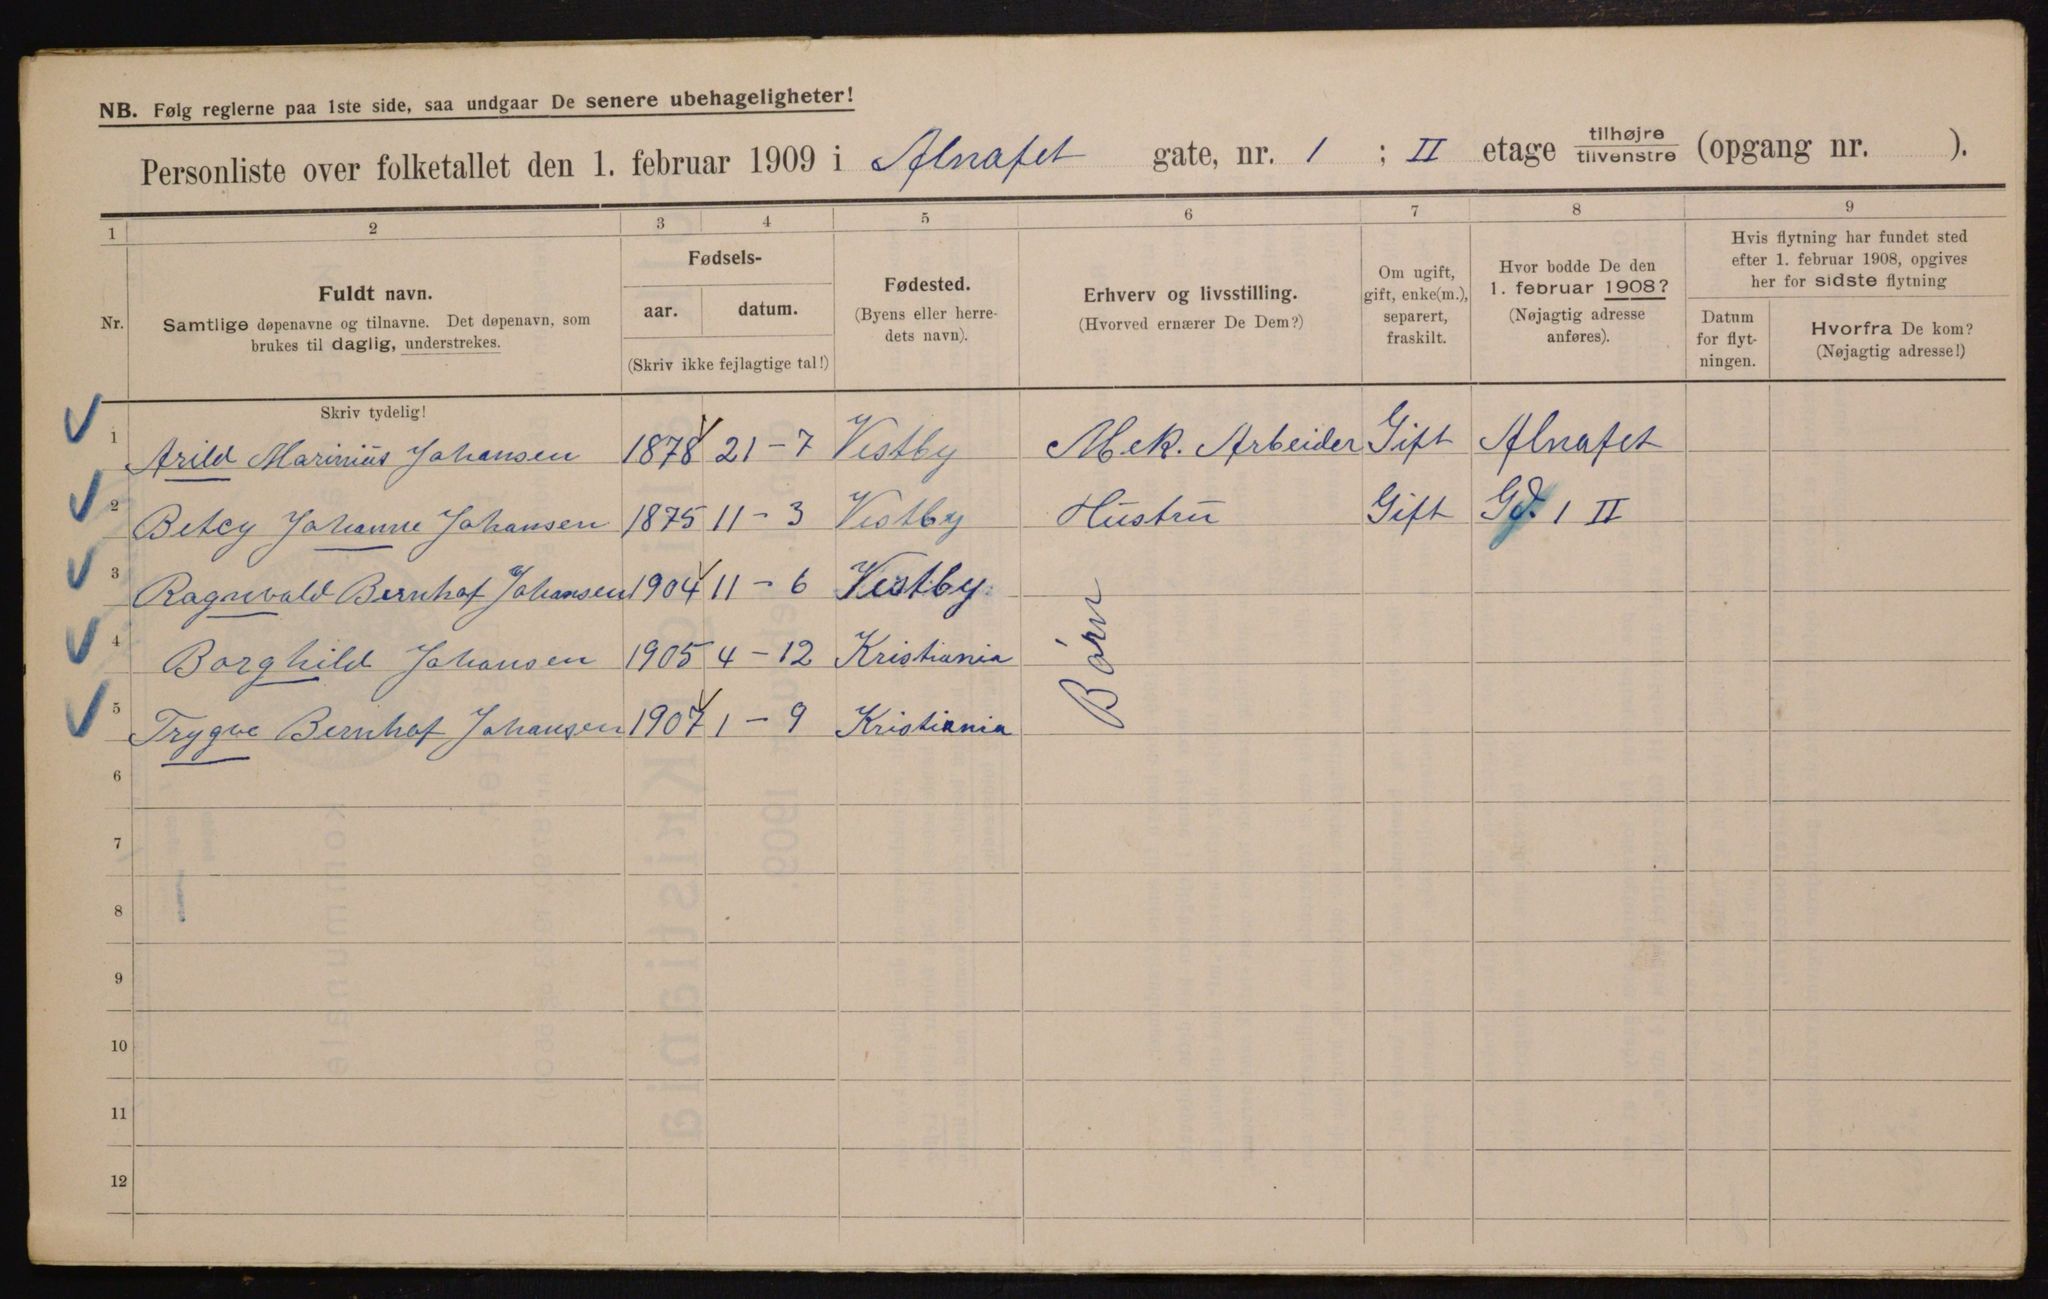 NB. Følg reglerne paa 1ste side, saa undgaar De senere ubehageligheter!
Personliste over folketallet den 1. februar 1909 i Alnafet gate, nr. 1 ; II etage tilhøjre / tilvenstre (opgang nr. ).
1 2 3 4 5 6 7 8 9
Nr.
Fuldt navn.
Samtlige døpenavne og tilnavne. Det døpenavn, som
brukes til daglig, understrekes.
Skriv tydelig!
Fødsels-
aar. datum.
(Skriv ikke fejlagtige tal!)
Fødested.
(Byens eller herre-
dets navn).
Erhverv og livsstilling.
(Hvorved ernærer De Dem?)
Om ugift,
gift, enke(m.),
separert,
fraskilt.
Hvor bodde De den
1. februar 1908?
(Nøjagtig adresse
anføres).
Hvis flytning har fundet sted
efter 1. februar 1908, opgives
her for sidste flytning
Datum
for flyt-
ningen.
Hvorfra De kom?
(Nøjagtig adresse!)
1 Arild Marinius Johansen 1878 21-7 Vestby Mek. Arbeider Gift Alnafet
2 Betcy Johanne Johansen 1875 11-3 Vestby Hustru Gift Gd. 1 II
3 Ragnvald Bernhof Johansen 1904 11-6 Vestby
4 Borghild Johansen 1905 4-12 Kristiania
5 Trygve Bernhof Johansen 1907 1-9 Kristiania
Børn
6
7
8
9
10
11
12